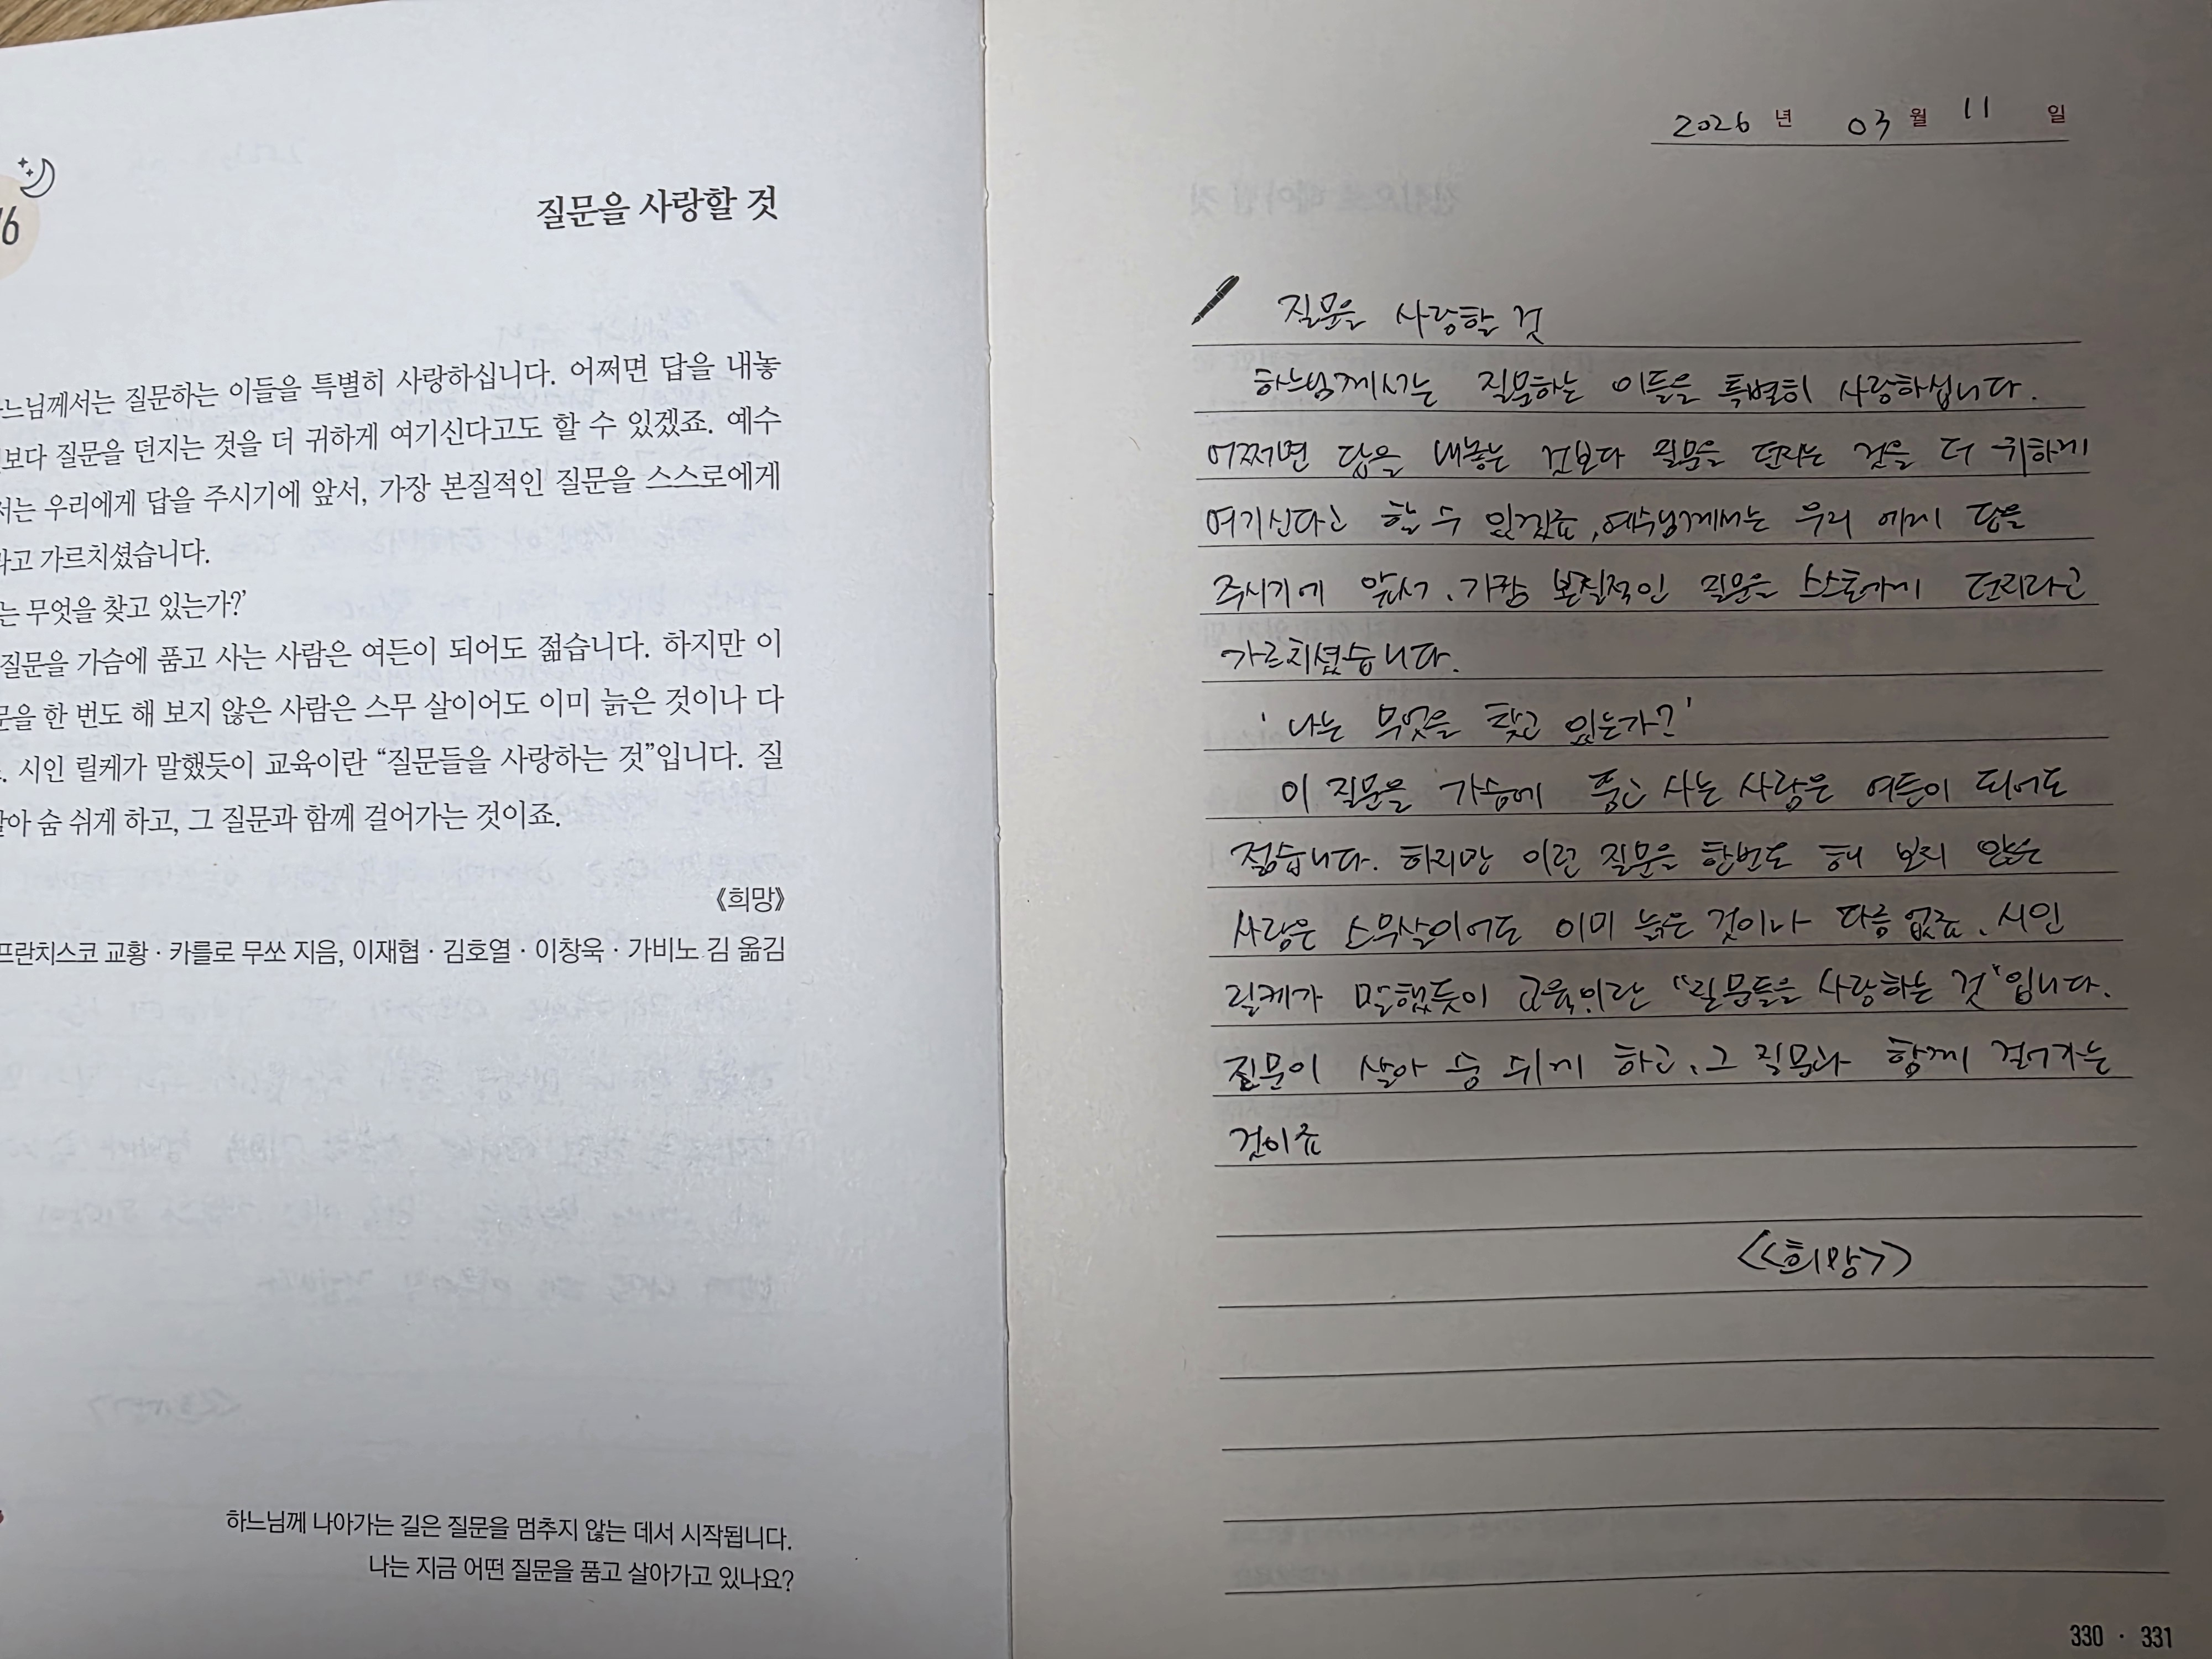 질문을 사랑할 것
느님께서는 질문하는 이들을 특별히 사랑하십니다. 어쩌면 답을 내놓
보다 질문을 던지는 것을 더 귀하게 여기신다고도 할 수 있겠죠. 예수
서는 우리에게 답을 주시기에 앞서, 가장 본질적인 질문을 스스로에게
라고 가르치셨습니다.
는 무엇을 찾고 있는가?’
질문을 가슴에 품고 사는 사람은 여든이 되어도 젊습니다. 하지만 이
문을 한 번도 해 보지 않은 사람은 스무 살이어도 이미 늙은 것이나 다
. 시인 릴케가 말했듯이 교육이란 “질문들을 사랑하는 것”입니다. 질
살아 숨 쉬게 하고, 그 질문과 함께 걸어가는 것이죠.
《희망》
프란치스코 교황 · 카를로 무쏘 지음, 이재협 · 김호열 · 이창욱 · 가비노 김 옮김
하느님께 나아가는 길은 질문을 멈추지 않는 데서 시작됩니다.
나는 지금 어떤 질문을 품고 살아가고 있나요?
2026 년 03 월 11 일
질문을 사랑할 것
하느님께서는 질문하는 이들을 특별히 사랑하십니다.
어쩌면 답을 내놓는 것보다 질문을 던지는 것을 더 귀하게
여기신다고 할 수 있겠죠, 예수님께서는 우리 에게 답을
주시기에 앞서, 가장 본질적인 질문을 스스로에게 던지라고
가르치셨습니다.
'나는 무엇을 찾고 있는가?'
이 질문을 가슴에 품고 사는 사람은 여든이 되어도
젊습니다. 하지만 이런 질문을 한번도 해 보지 않은
사람은 스무살이어도 이미 늙은 것이나 다름 없죠. 시인
릴케가 말했듯이 교육이란 "질문들을 사랑하는 것"입니다.
질문이 살아 숨 쉬게 하고, 그 질문과 함께 걸어가는
것이죠
<<희망>>
330 · 331